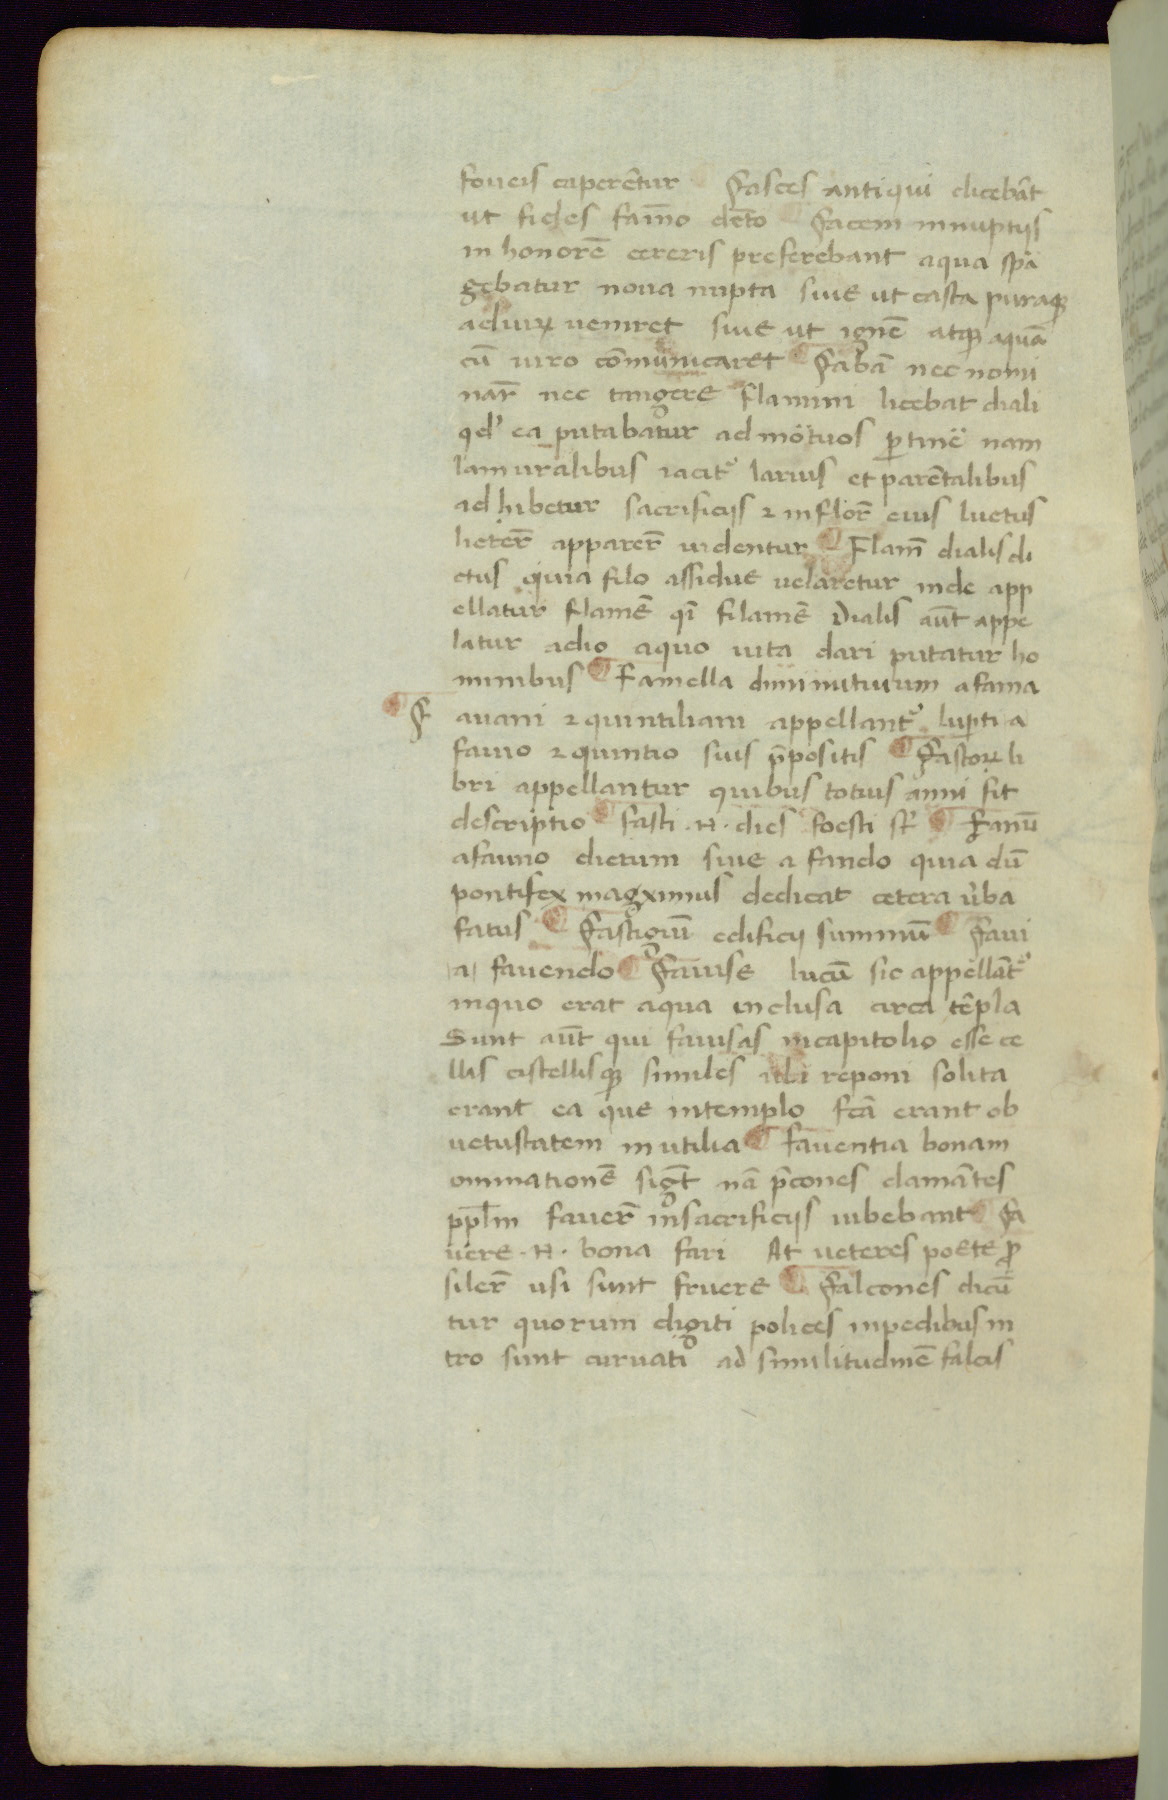 foueis caperētur Fasces antiqui dicebāt
ut fides fam̄o dēto Facem innuptijs
in honorē cereris preferebant aqua spā
gebatur noua nupta siue ut casta puraqꝫ
aduiꝝ ueniret siue ut ignē atqꝫ aquā
cū uiro cōmunicaret Fabā nec nomi
nar̄ nec tangere flamini licebat diali
qd' ea putabatur ad mōtuos ꝑtinē nam
lamuralibus iacit᷑ laruis et parētalibus
ad hibetur sacrificijs ⁊ inflor̄ eius luctus
lieter̄ apparer̄ uidentur Flam̄ dialis di
ctus quia filo assidue uelaretur inde app
ellatur flamē qī filamē Dialis aūt appe
latur adio aquo uita dari putatur ho
minibus Famella diminutiuum afama
F auani ⁊ quintiliani appellant᷑ luperti a
fauio ⁊ quintio suis p̄positis Fastoꝝ li
bri appellantur quibus totius anni fit
descriptio fasti .N. dies foesti st̄ Fanū
afauno dictum siue a fando quia dū
pontifex magximus dedicat cetera ũba
fatus Fastigiū edificij summū Faui
a fauendo Fauise lucū sic appellāt᷑
inquo erat aqua inclusa circa tēpla
Sunt aūt qui fauisas incapitolio esse ce
llis cistellisqꝫ similes ubi reponi solita
erant ea que intemplo fcā erant ob
uetustatem inutilia fauentia bonam
ominationē sigt̄ nā p̄cones clamātes
ppl̄m fauer̄ insacrificijs iubebant Fa
uere .N. bona fari At ueteres poete ꝓ
siler̄ usi sunt fruere Falcones dicū
tur quorum digiti polices inpedibus in
tro sunt curuati ad similitudinē falcis